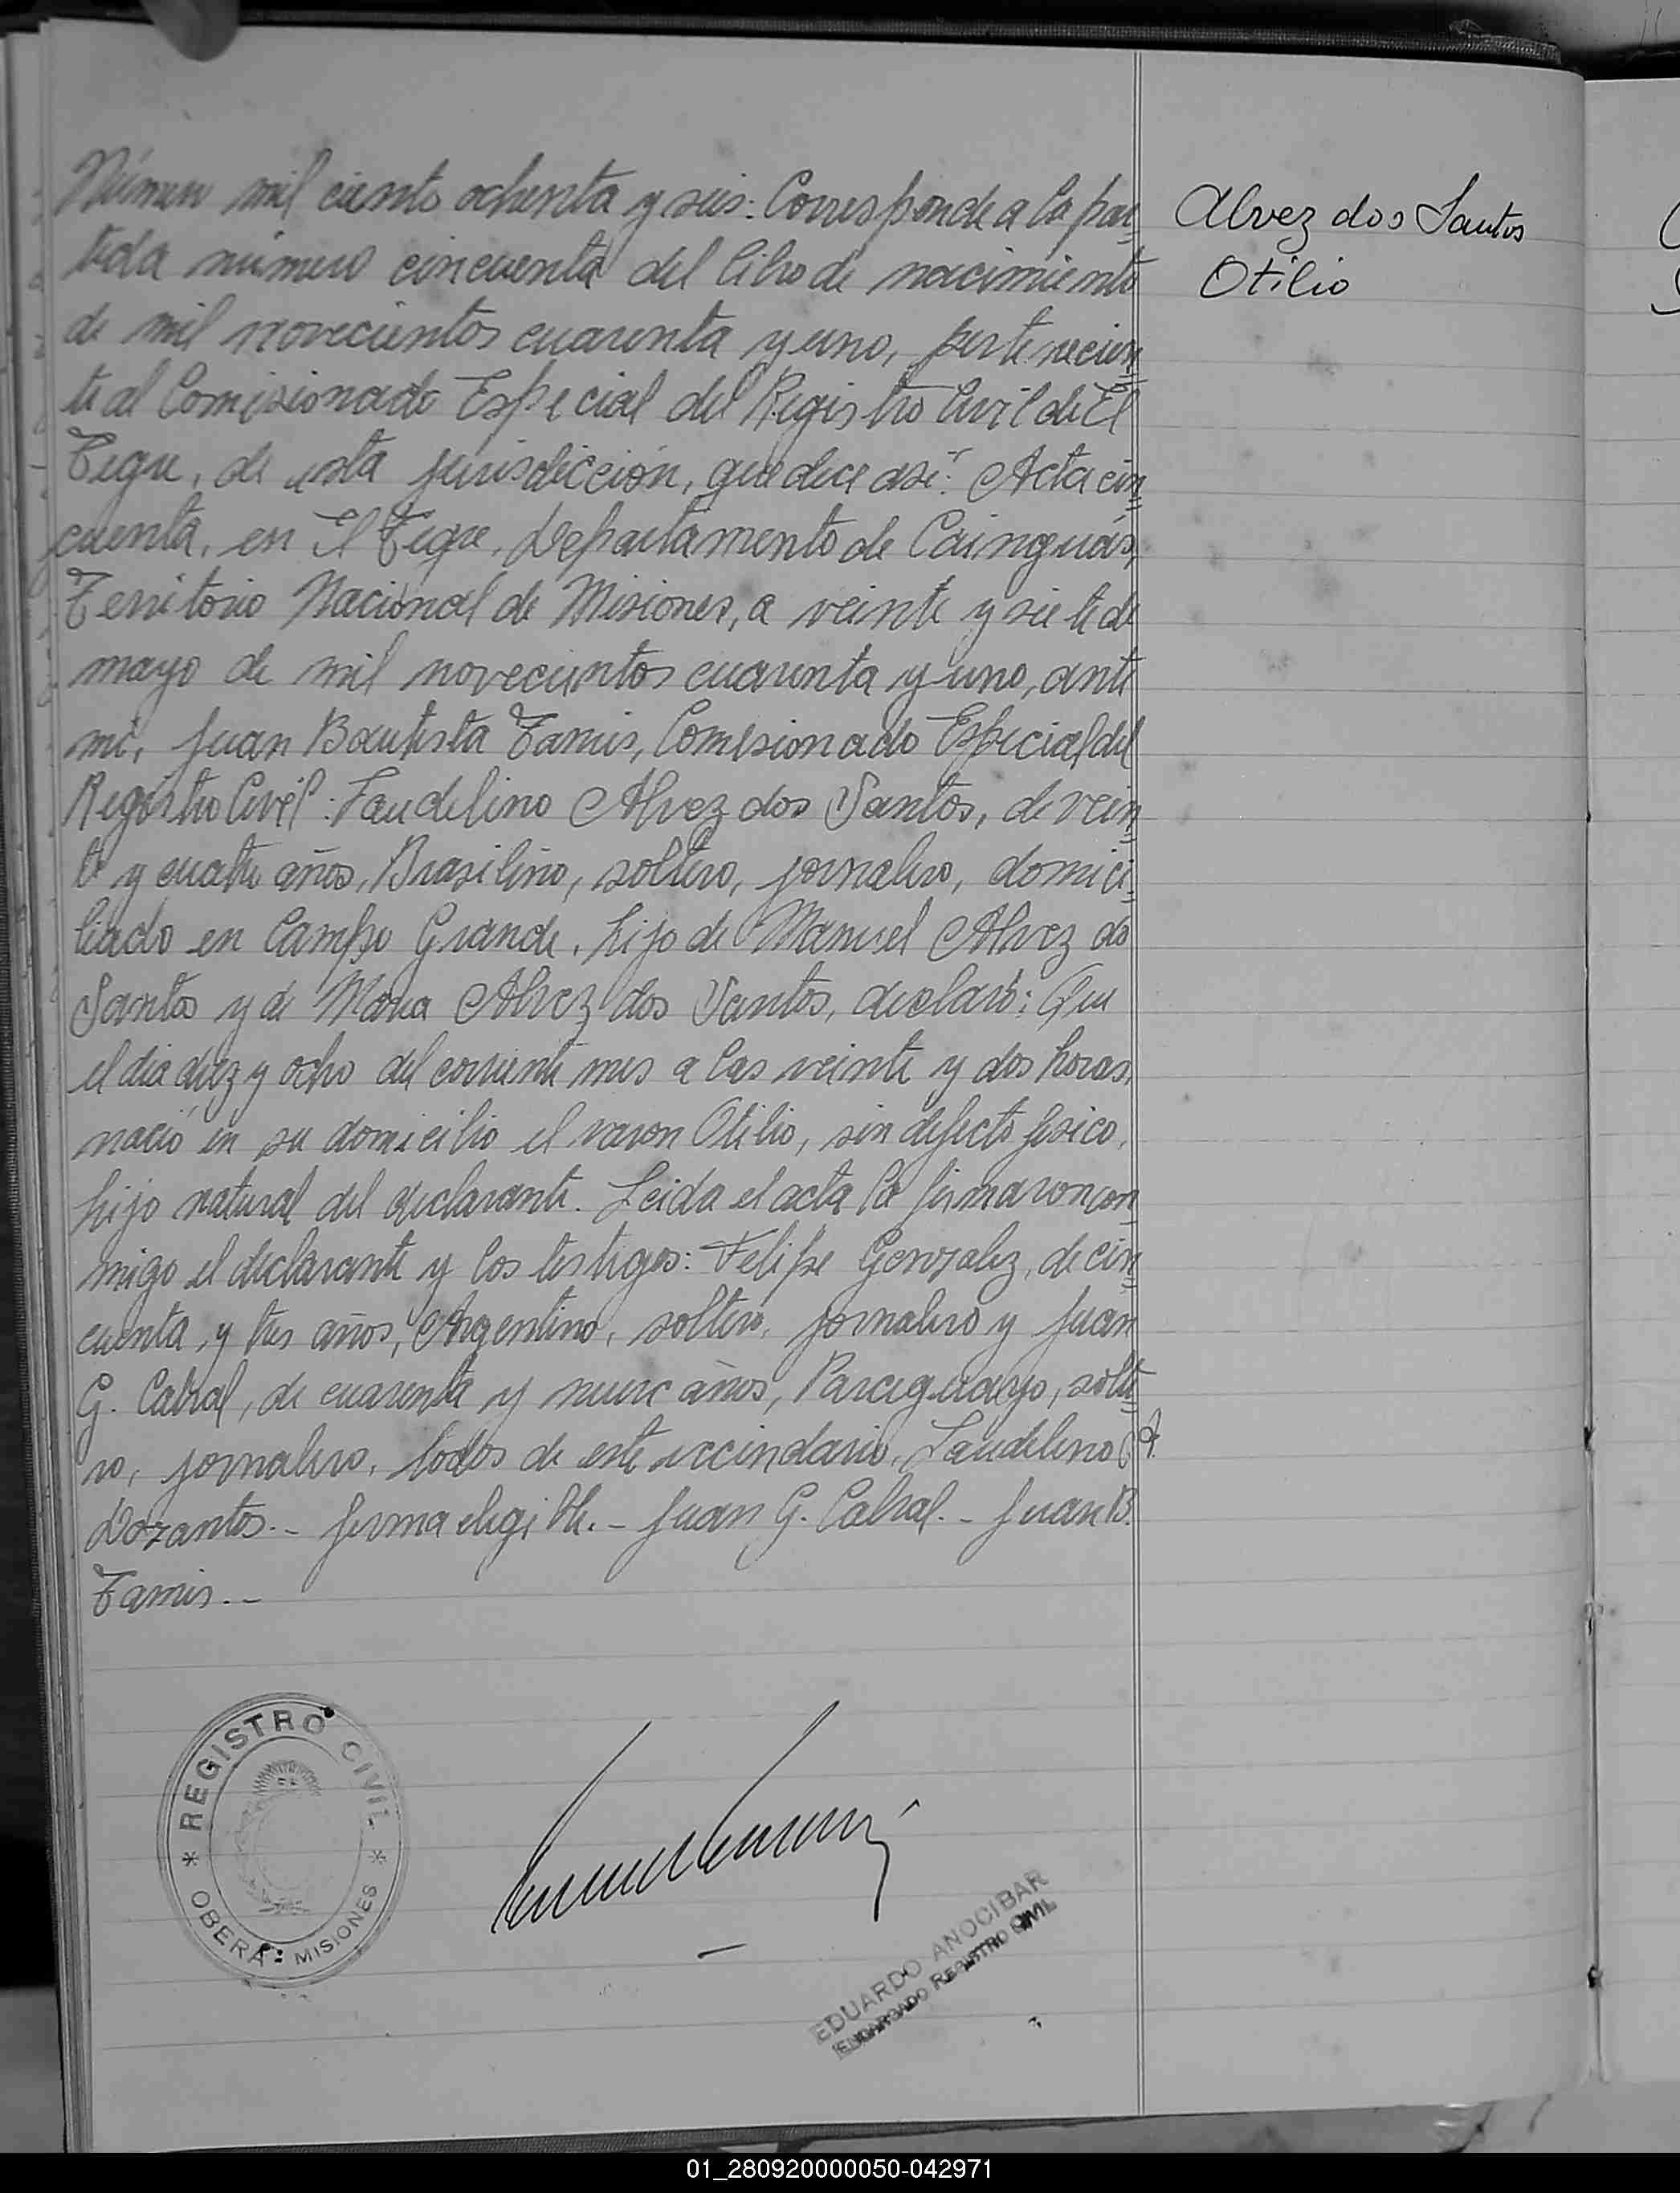 Número mil ciento ochenta y seis: Corresponde a la par-
tida número cincuenta del libro de nacimiento
de mil novecientos cuarenta y uno, pertenecien-
te al Comisionado Especial del Registro Civil de El
Tigre, de esta jurisdicción, que dice así: Acta cin-
cuenta, en El Tigre, Departamento de Cainguás,
Territorio Nacional de Misiones, a veinte y siete de
mayo de mil novecientos cuarenta y uno, ante
mi, Juan Bautista Tamis, Comisionado Especial del
Registro Civil: Laudelino Alvez dos Santos, de vein-
te y cuatro años, Brasilino, soltero, jornalero, domici-
liado en Campo Grande, hijo de Manuel Alvez do
Santos y de Maria Alvez dos Santos, declaró: Que
el dia diez y ocho del corriente mes a las veinte y dos horas,
nació en su domicilio el varon Otilio, sin defecto fisico,
hijo natural del declarante. Leida el acta la firmaron con-
migo el declarante y los testigos: Felipe Gonzalez, de cin-
cuenta y tres años, Argentino, soltero, jornalero y Juan
G. Cabral, de cuarenta y nueve años, Paraguayo, solte-
ro, jornalero, todos de este vecindario, Laudelino A.
Dozantos.- firma elegible.- Juan G. Cabral.- Juan B.
Tamis.-
Alvez dos Santos
Otilio
REGISTRO CIVIL
* OBERÁ: MISIONES *
EDUARDO ANOCIBAR
ENCARGADO REGISTRO CIVIL
01_280920000050-042971